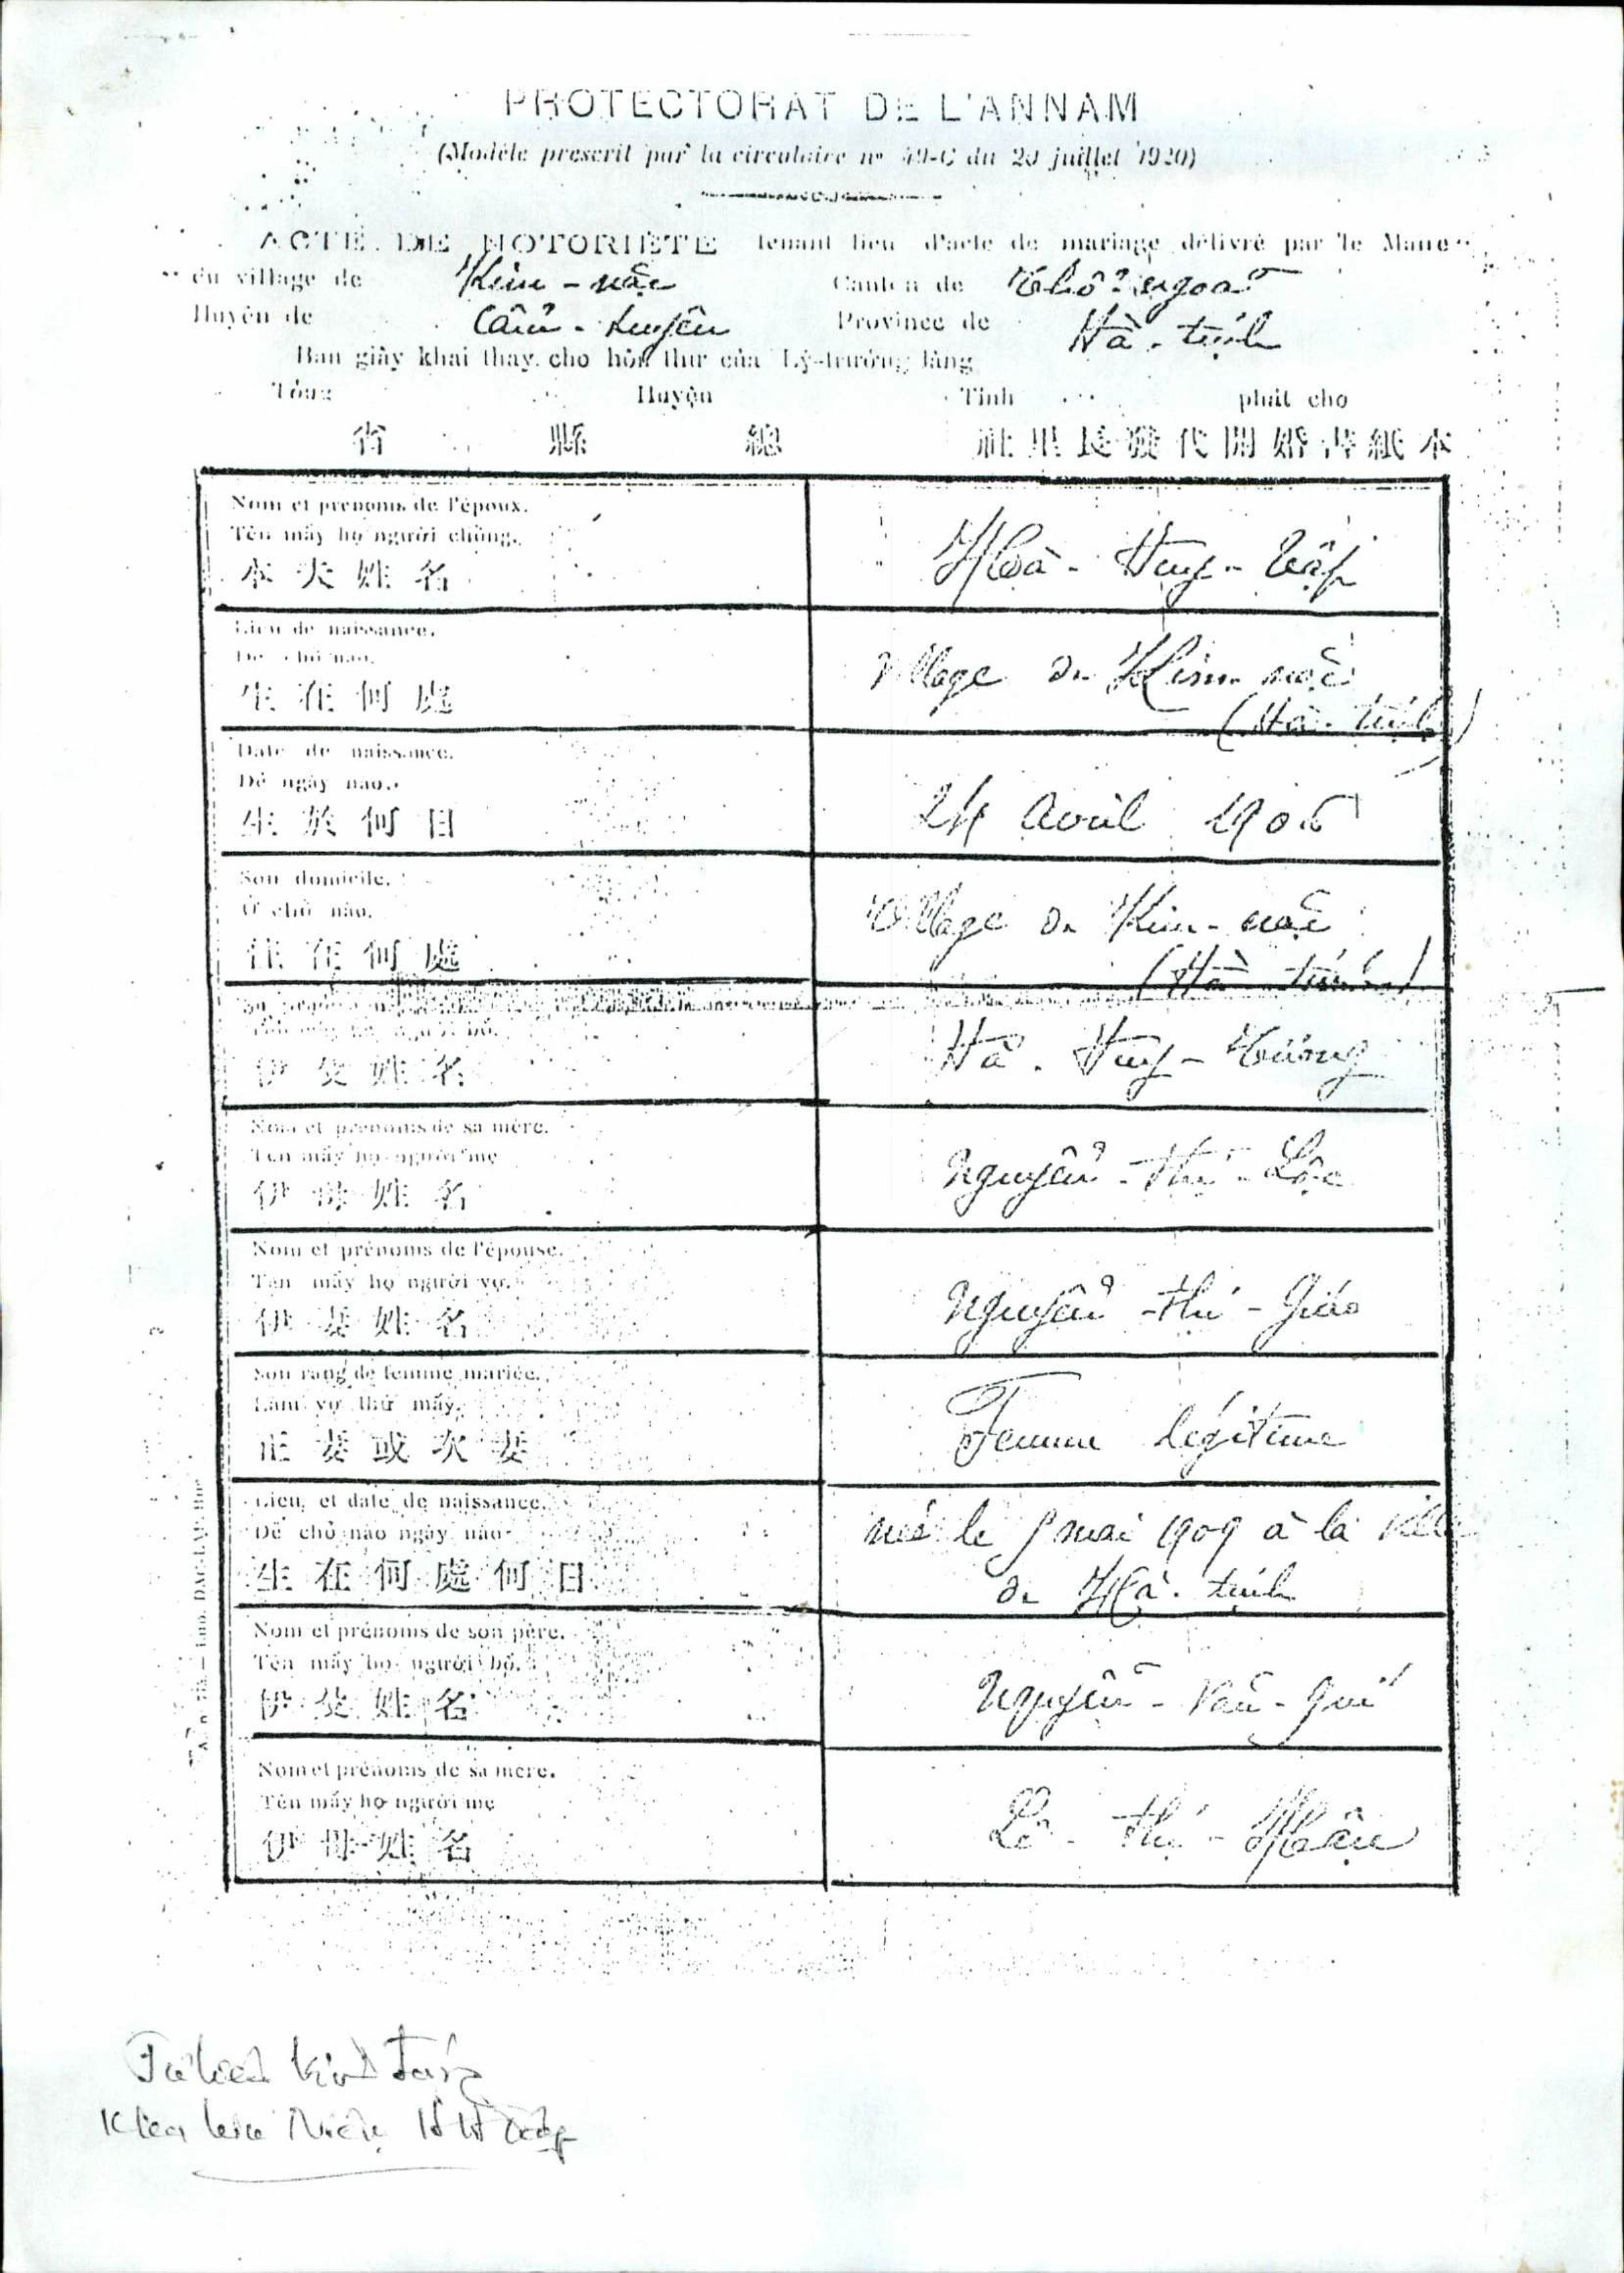 PROTECTORAT DE L'ANNAM
(Modèle prescrit par la circulaire nº 49-C du 20 juillet 1920)
ACTE DE NOTORIETE tenant lieu d'acte de mariage délivré par le Maire
du village de Kim-nặc Canton de Thổ-ngoạ
Huyện de Cẩm-xuyên Province de Hà-tịnh
Bản giấy khai thay cho hôn thư của Lý-trưởng làng
Tổng Huyện Tỉnh phát cho
省 縣 總 社里長發代開婚書紙本
Nom et prénoms de l'époux. Hà-Huy-Tập
Tên mấy họ người chồng.
本夫姓名
Lieu de naissance. Village de Kim-nặc
Đẻ chỗ nào. (Hà-tịnh)
生在何處
Date de naissance. 24 avril 1906
Đẻ ngày nào.
生於何日
Son domicile. Village de Kim-nặc
Ở chỗ nào. (Hà-tịnh)
住在何處
Hà-Huy-Tường
伊父姓名
Nom et prénoms de sa mère. Nguyễn-thị-Lộc
Tên mấy họ người mẹ
伊母姓名
Nom et prénoms de l'épouse. Nguyễn-thị-Giáo
Tên mấy họ người vợ.
伊妻姓名
Son rang de femme mariée. Femme légitime
Làm vợ thứ mấy.
正妻或次妻
Lieu et date de naissance. née le mai 1909 à la ville
Đẻ chỗ nào ngày nào de Hà-tịnh
生在何處何日
Nom et prénoms de son père. Nguyễn-Văn-Quí
Tên mấy họ người bố.
伊父姓名
Nom et prénoms de sa mère. Lê-thị-Hậu
Tên mấy họ người mẹ
伊母姓名